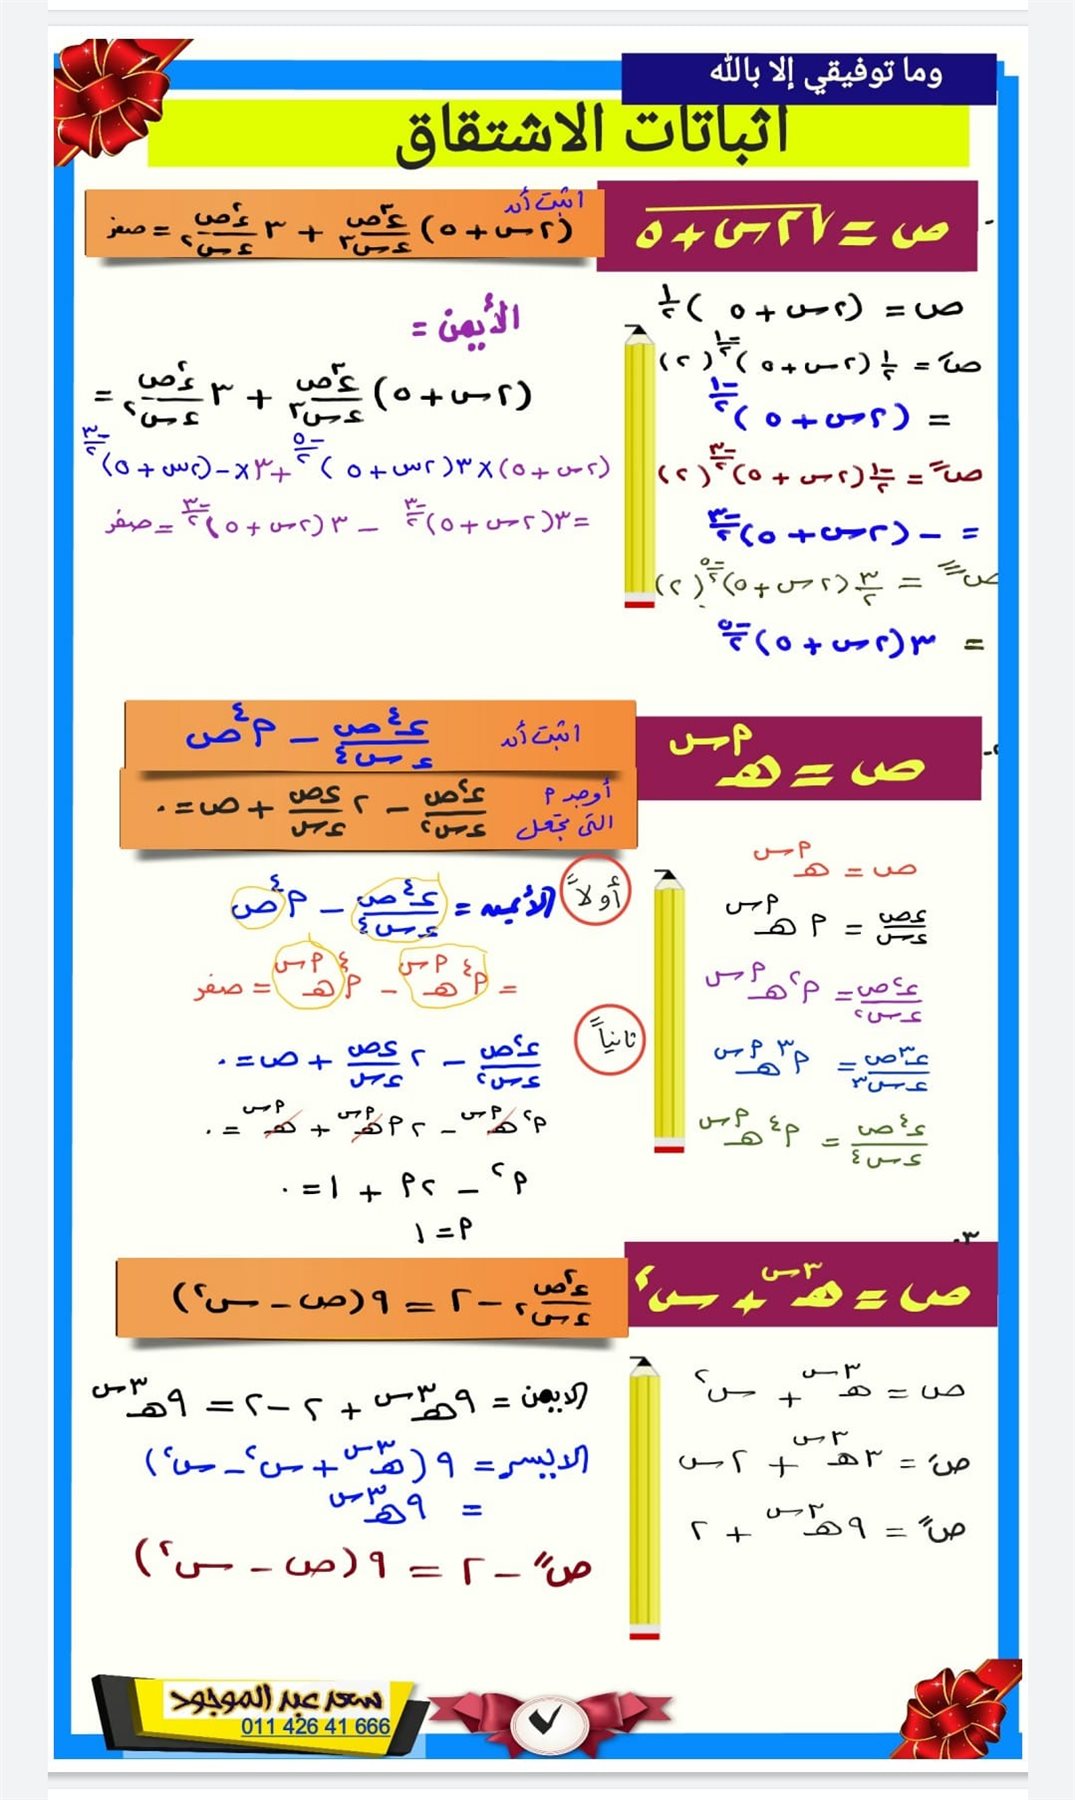 وما توفيقي إلا بالله
اثباتات الاشتقاق
ص = √٢س + ٥
اثبت أن
(٢س + ٥) ء³ص/ءس³ + ٣ ء²ص/ءس² = صفر
ص = (٢س + ٥)^(١/٢)
صَ = ١/٢ (٢س + ٥)^(-١/٢) (٢)
= (٢س + ٥)^(-١/٢)
صً = -١/٢ (٢س + ٥)^(-٣/٢) (٢)
= - (٢س + ٥)^(-٣/٢)
ص = ٣/٢ (٢س + ٥)^(-٥/٢) (٢)
= ٣(٢س + ٥)^(-٥/٢)
الأيمن =
(٢س + ٥) ء³ص/ءس³ + ٣ ء²ص/ءس² =
(٢س + ٥) × ٣(٢س + ٥)^(-٥/٢) + ٣ × -(٢س + ٥)^(-٣/٢)
= ٣(٢س + ٥)^(-٣/٢) - ٣(٢س + ٥)^(-٣/٢) = صفر
٢-
ص = هـ^(م س)
اثبت أن ء⁴ص/ءس⁴ - م⁴ص
أوجد م التى تجعل ء²ص/ءس² - ٢ ءص/ءس + ص = ٠
ص = هـ^(م س)
ءص/ءس = م هـ^(م س)
ء²ص/ءس² = م² هـ^(م س)
ء³ص/ءس³ = م³ هـ^(م س)
ء⁴ص/ءس⁴ = م⁴ هـ^(م س)
أولاً الأيمن = ء⁴ص/ءس⁴ - م⁴ص
= م⁴ هـ^(م س) - م⁴ هـ^(م س) = صفر
ثانياً
ء²ص/ءس² - ٢ ءص/ءس + ص = ٠
م² هـ^(م س) - ٢م هـ^(م س) + هـ^(م س) = ٠
م² - ٢م + ١ = ٠
م = ١
٣-
ص = هـ^(٣س) + س²
ء²ص/ءس² - ٢ = ٩(ص - س²)
ص = هـ^(٣س) + س²
صَ = ٣هـ^(٣س) + ٢س
صً = ٩هـ^(٣س) + ٢
الايمن = ٩هـ^(٣س) + ٢ - ٢ = ٩هـ^(٣س)
الايسر = ٩(هـ^(٣س) + س² - س²)
= ٩هـ^(٣س)
صً - ٢ = ٩(ص - س²)
سعد عبد الموجود
011 426 41 666